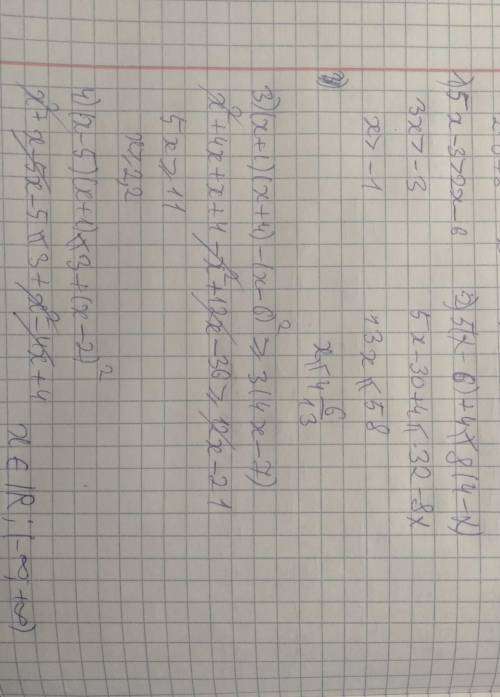 1) 5x-3>2x-6
3x>-3
x>-1
2) 5(x-6)+4⩽8(4-x)
5x-30+4⩽32-8x
13x⩽58
x⩽4 6/13
3) (x+1)(x+4)-(x-6)²⩾3(4x-7)
x²+4x+x+4-x²+12x-36⩾12x-21
5x⩾11
x⩾2,2
4) (x-5)(x+1)⩽3+(x-2)²
x²+x-5x-5⩽3+x²-4x+4
x∈ℝ; (-∞;+∞)